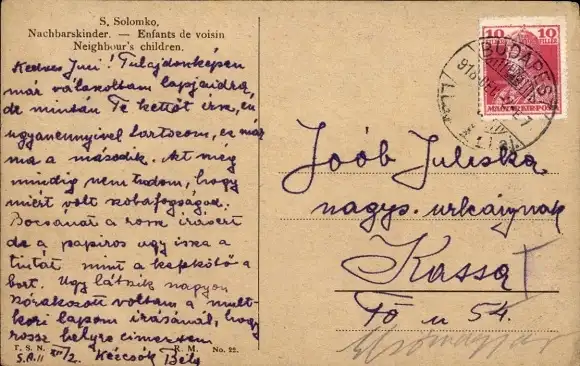 S. Solomko,
Nachbarskinder. — Enfants de voisin
Neighbour's children.
Kedves Juci! Tulajdonképen
már válaszoltam lapjaidra,
de mintán Te kettőt írsz, én
ugyanennyivel tartozom, ez már
ma a második. Azt még
mindig nem tudom, hogy
miért volt szobafogságod.
Bocsánat a rossz írásért
de a papiros úgy issza a
tintát mint a kefekötő a
bort. Úgy látszik nagyon
szórakozott voltam a mult-
kori lapom írásánál, hogy
rossz helyre címeztem
Kézcsók Béla
XII/2.
T. S. N. R. M. No. 22.
S.A.II
10 10
MAGYAR KIR. POSTA
BUDAPEST
Joób Juliska
nagys. urleánynak
Kassa
Fő u 54.